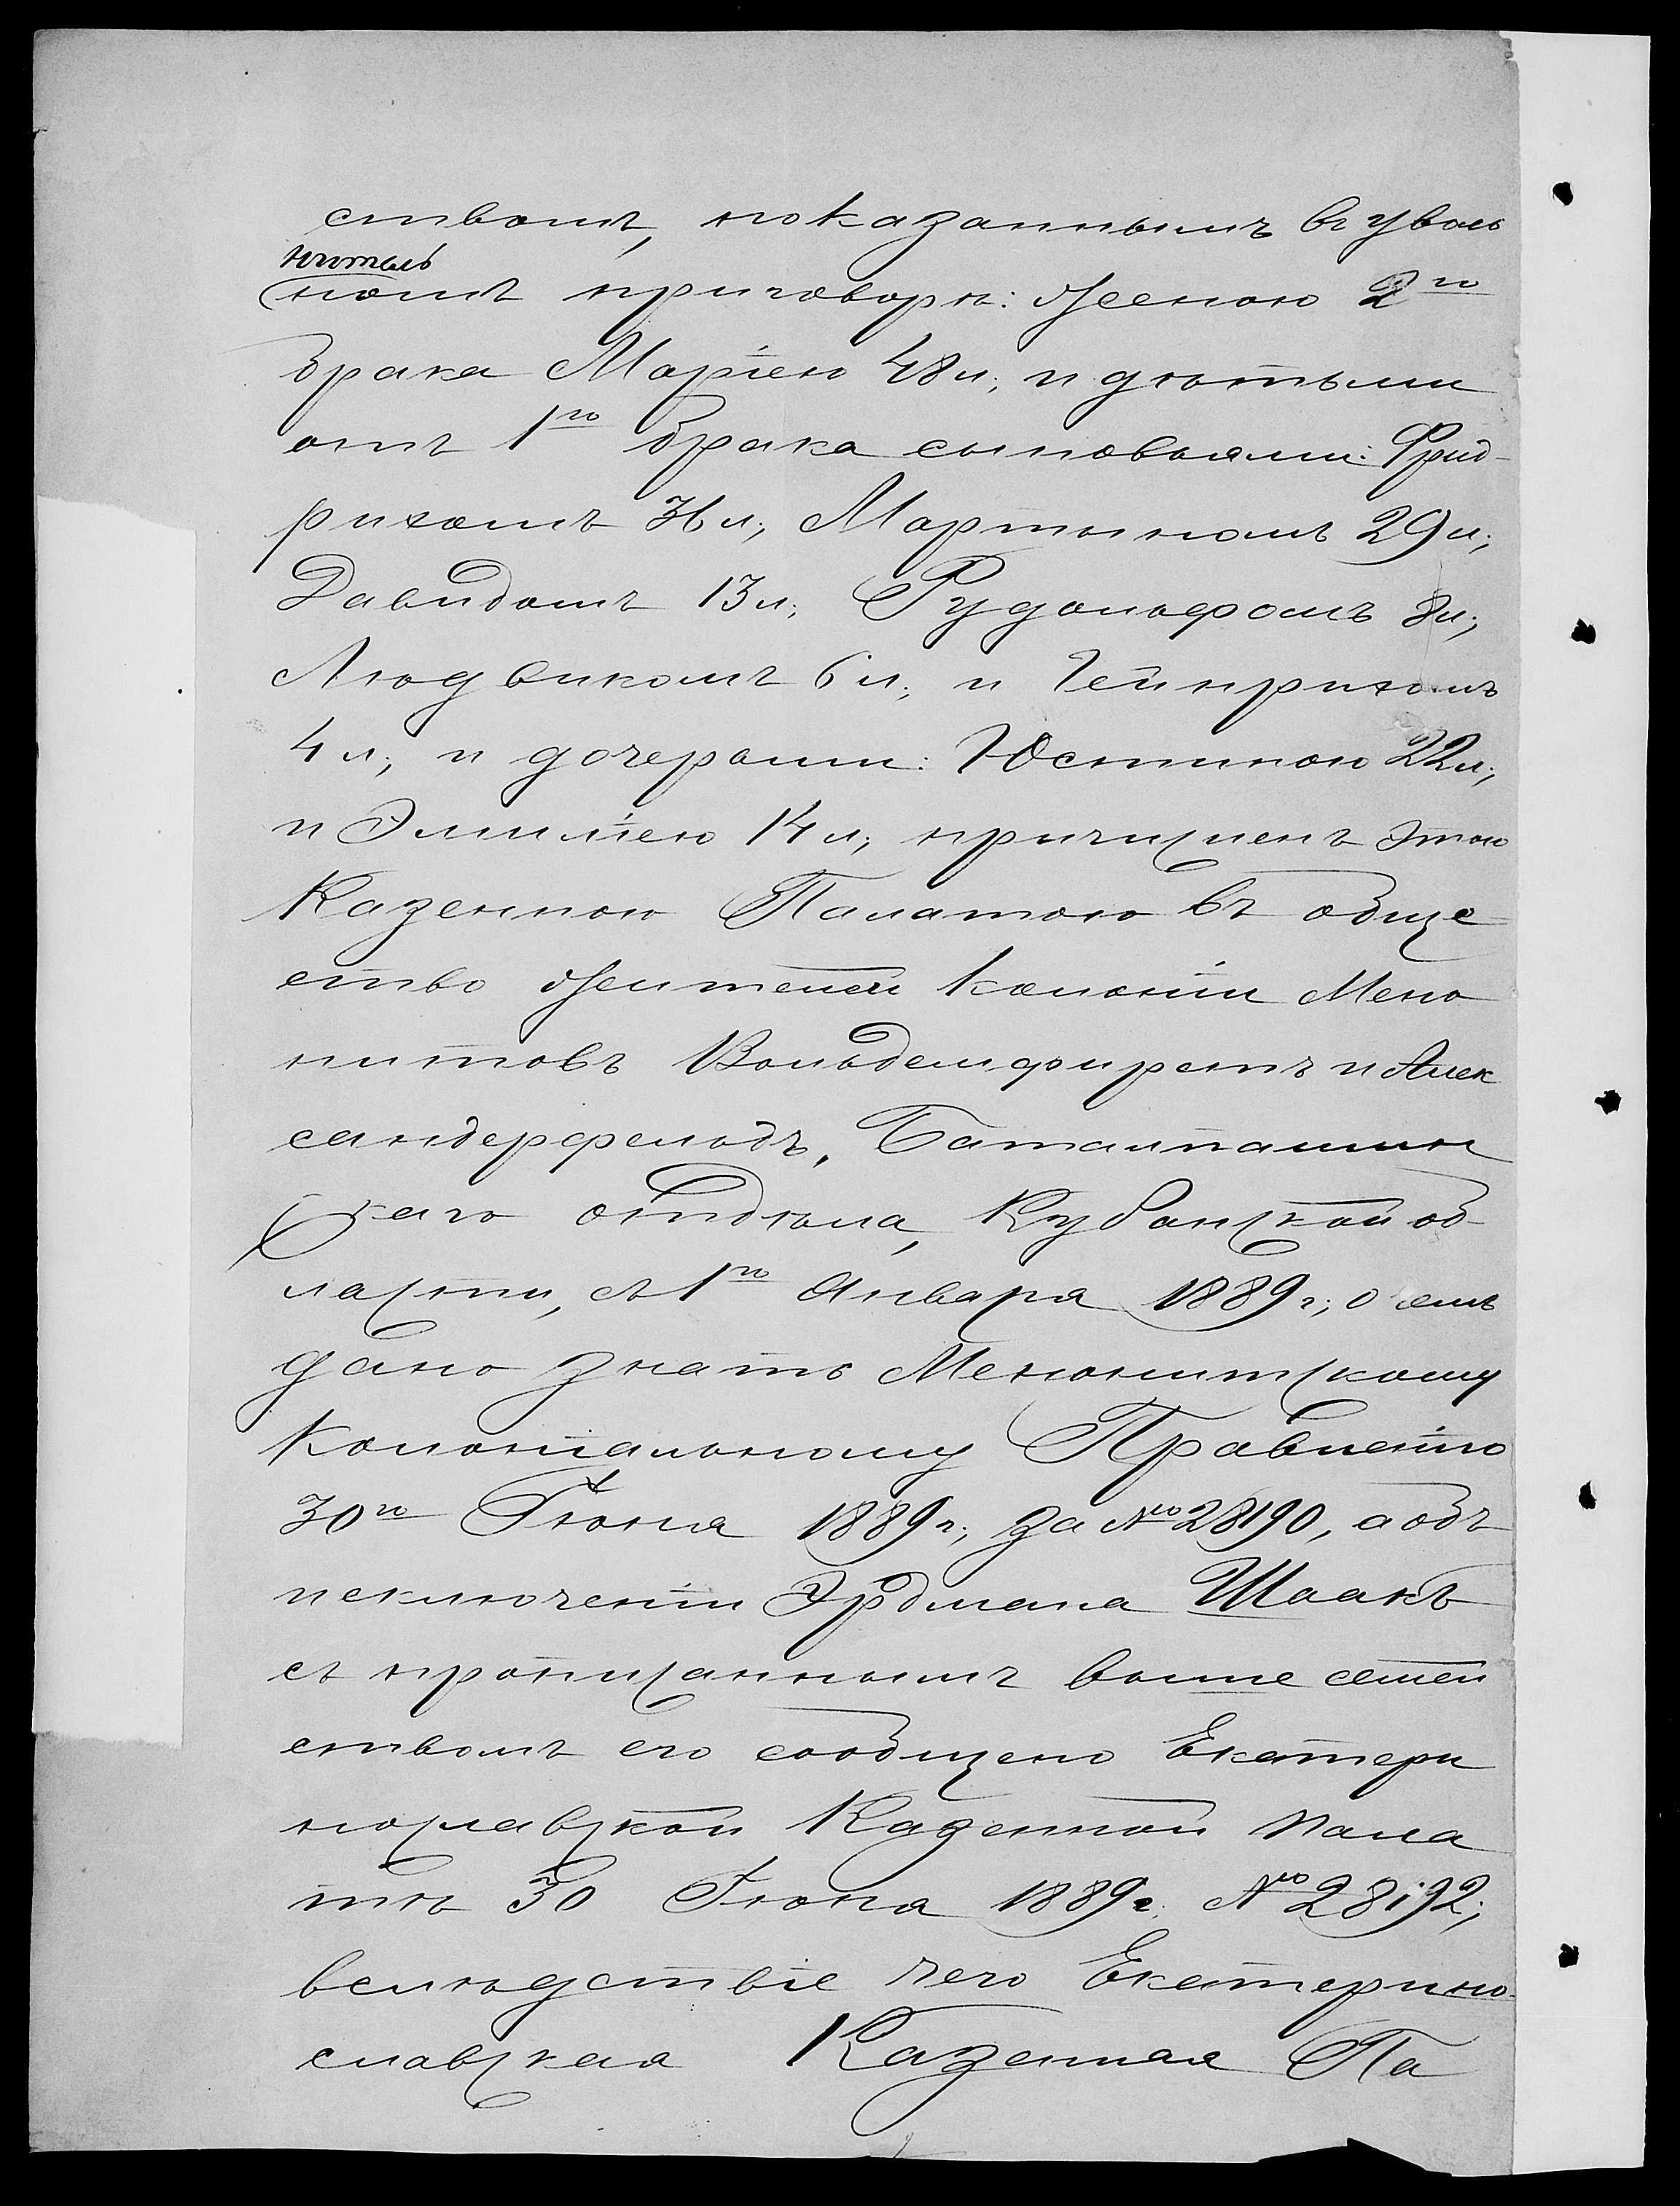 ствомъ, показаннымъ въ уволь
нитель
номъ приговорѣ: женою 2го
брака Маріею 48 л., и дѣтьми
отъ 1го брака сыновьями: Фрид-
рихомъ 36 л., Мартыномъ 29 л.,
Давидомъ 13 л., Рудольфомъ 8 л.,
Людвикомъ 6 л., и Гейнрихомъ
4 л., и дочерьми: Юстиною 22 л.,
и Эмиліею 14 л., причисленъ этою
Казенною Палатою въ обще-
ство жителей колоніи Мено
нитовъ Вольдемфирстъ и Алек
сандерфельдъ, Баталпашин
скаго отдѣла, Кубанской об-
ласти, съ 1го Января 1889 г., о чемъ
дано знать Менонитскому
Колоніальному Правленію
30го Іюня 1889 г., за № 28190, а объ
исключеніи Эрдмана Шаакъ
съ прописаннымъ выше семей
ствомъ его сообщено Екатери
нославской Казенной Пала
тѣ 30 Іюня 1889 г. № 28192;
вслѣдствіе чего Екатерино-
славская Казенная Па